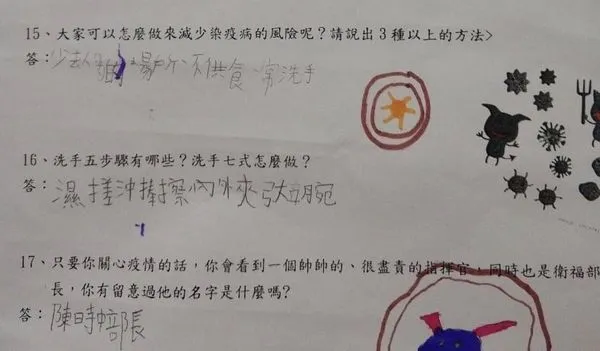 15、大家可以怎麼做來減少染疫病的風險呢？請說出3種以上的方法>
答：少去人 場所、不供食、常洗手
16、洗手五步驟有哪些？洗手七式怎麼做？
答：濕搓沖捧擦內外夾弓大立腕
17、只要你關心疫情的話，你會看到一個帥帥的、很盡責的指揮官，同時也是衛福部
長，你有留意過他的名字是什麼嗎?
答：陳時中部長